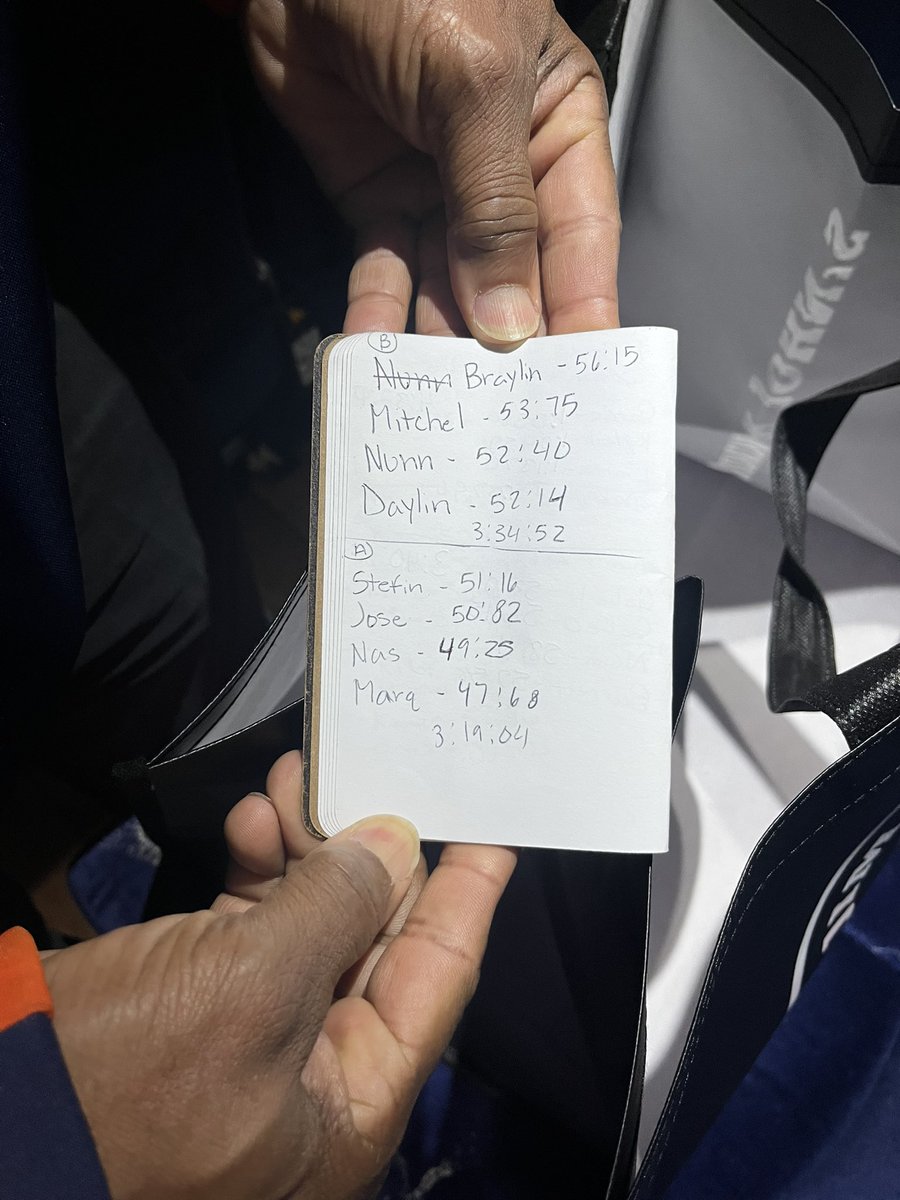 B
Nunn Braylin - 56:15
Mitchel - 53:75
Nunn - 52:40
Daylin - 52:14
3:34:52
A
Stefin - 51:16
Jose - 50:82
Nas - 49:25
Marq - 47:68
3:19:04